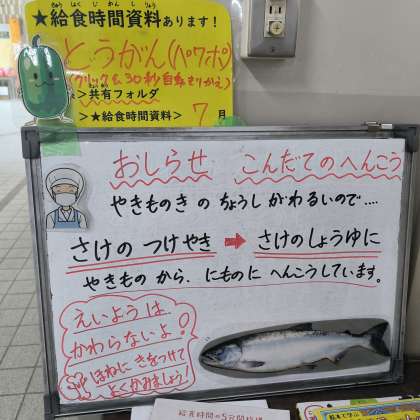 ★給食時間資料あります!
きゅうしょくじかんしりょう
とうがん(パワポ)
(クリック&30秒自動きりかえ)
>共有フォルダ
>★給食時間資料> 7月
おしらせ こんだてのへんこう
やきものき の ちょうし がわるいので‥‥
さけの つけやき ➡ さけのしょうゆに
やきもの から、にものに へんこうしています。
えいようは
かわらないよ!
ほねに きをつけて
よくかみましょう!
給食時間の5分間指導